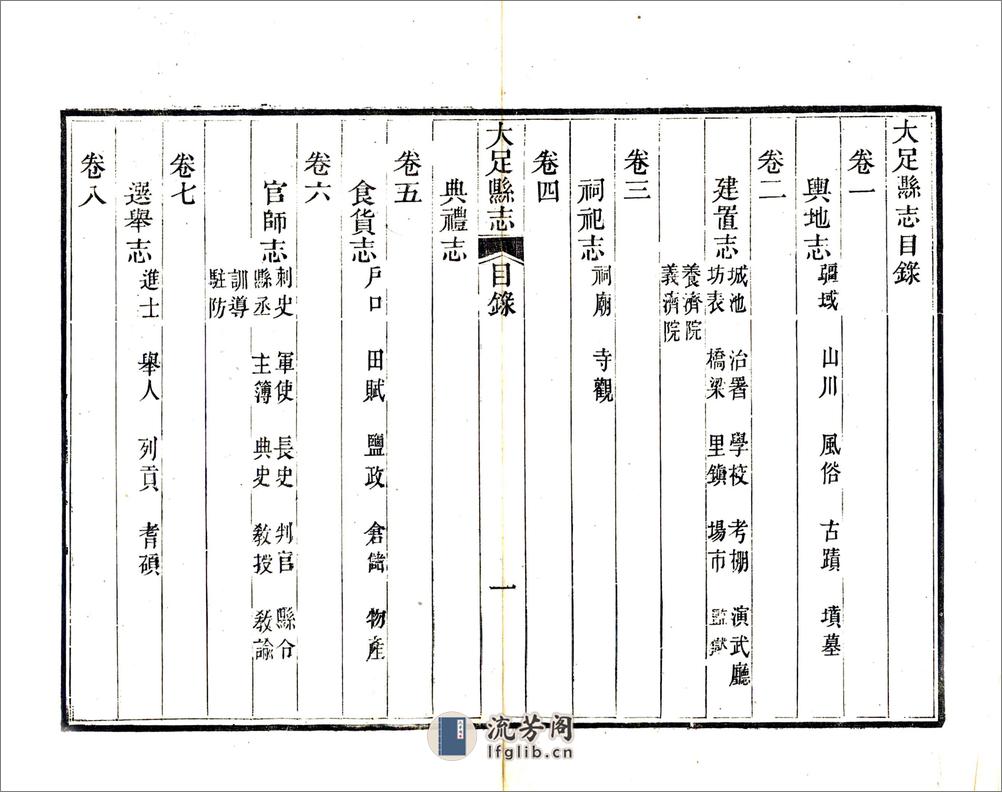 大足縣志目錄
卷一
輿地志 疆域 山川 風俗 古蹟 墳墓
卷二
建置志 城池 治署 學校 考棚 演武廳
坊表 橋梁 里鎭 場市 監獄
養濟院
義濟院
卷三
祠祀志 祠廟 寺觀
卷四
大足縣志 目錄 一
典禮志
卷五
食貨志 戶口 田賦 鹽政 倉儲 物產
卷六
官師志 刺史 軍使 長史 判官 縣令
縣丞 主簿 典史 敎授 敎諭
訓導
駐防
卷七
選舉志 進士 舉人 列貢 耆碩
卷八
流芳阁
lfglib.cn